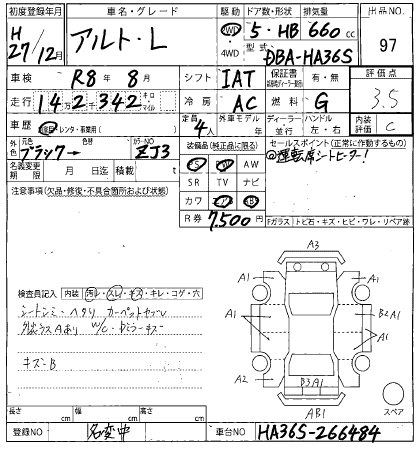 初度登録年月 車名・グレード 駆動 ドア数・形状 排気量 出品NO
H 27/12月 アルト・L 2WD 4WD 5・HB 660cc 97
型式 DBA-HA36S
車検 R8年 8月 シフト IAT 保証書 有・無 評価点
走行 14万2千342 キロ・マイル 冷房 AC 燃料 G 3.5
車歴 自家用・レンタ・事業用( ) 定員 4人 外車モデル 年 ディーラー・並行 ハンドル 左・右 内装評価 C
外色 元色 ブラック 色替 カラーNO ZJ3 装備品(純正品に限る) セールスポイント(正常に作動するもの)
名義変更期限 月 日迄 積載 t PS PW AW @運転席シートヒーター!
SR TV ナビ
注意事項(欠品・修復・不具合箇所および状態)
カワ エアB ABS
R券 7,500円
Fガラス トビ石・キズ・ヒビ・ワレ・リペア跡
A3
A1 A1
検査員記入 内装 汚レ・スレ・キズ・キレ・コゲ・穴
A1 B2A1
シートシミ・ヘタリ
A1
キズ-B
A2 B3A1 A1
AB1 スペア
長さ cm 幅 cm 高さ cm
登録NO 名変中 車台NO HA36S-266484